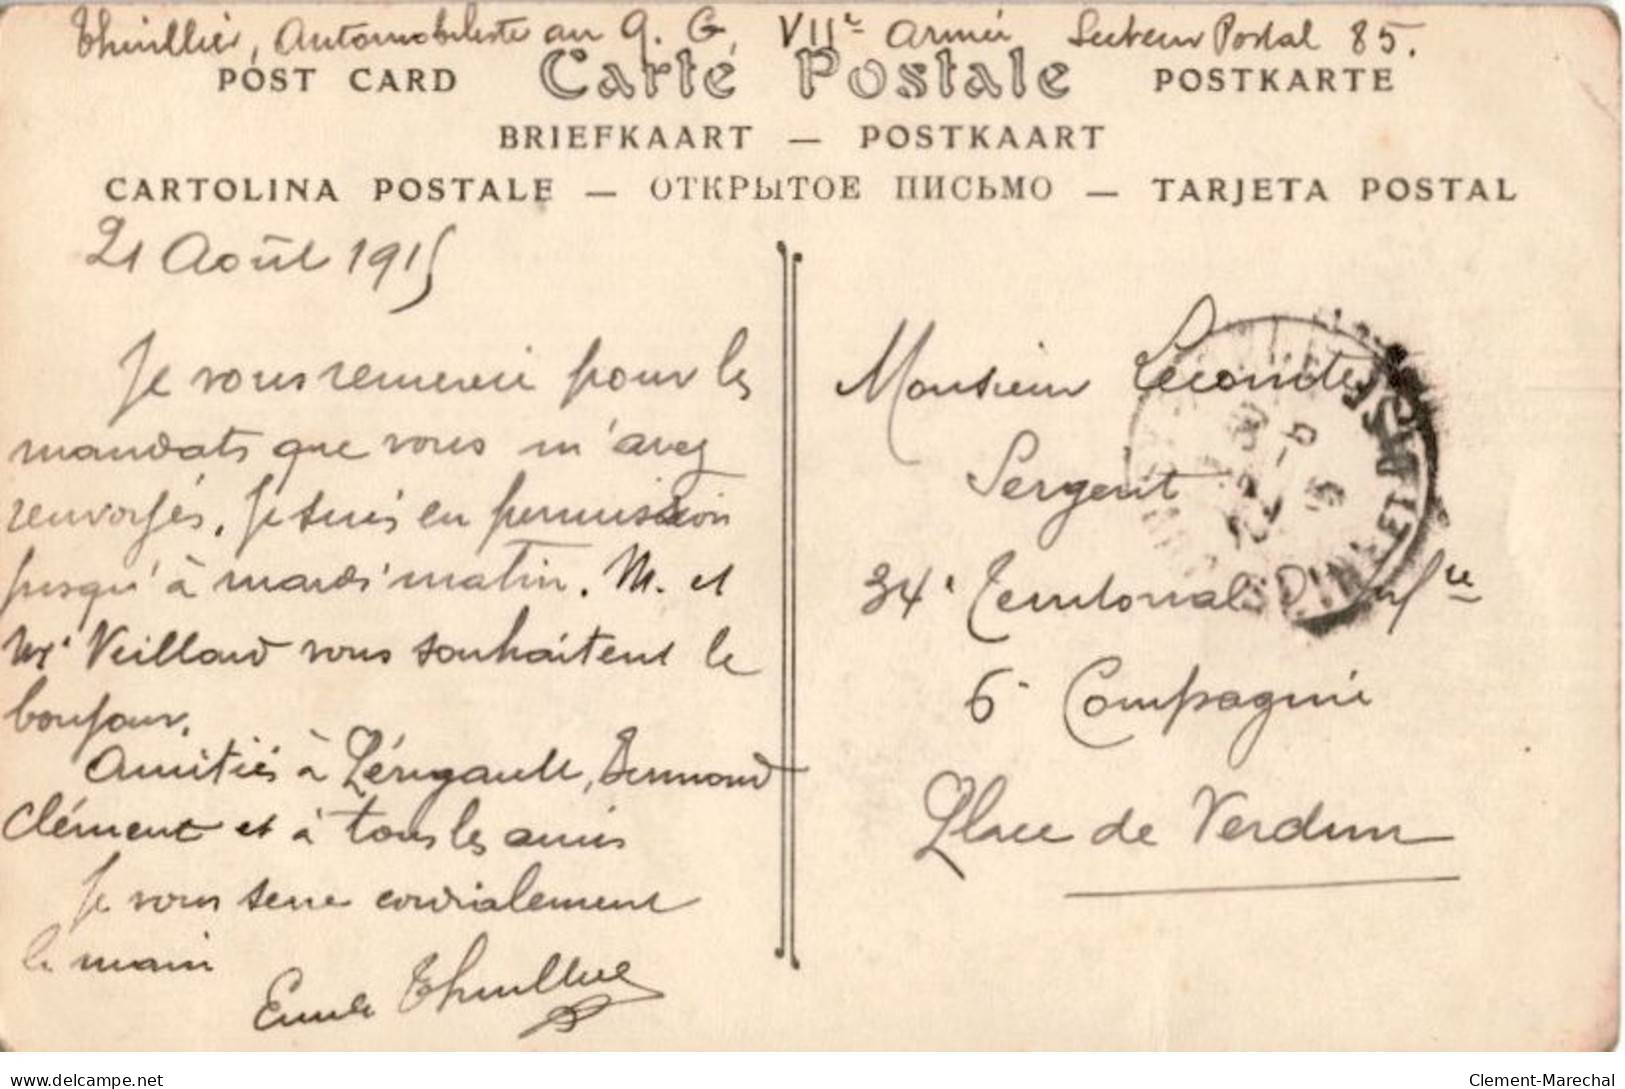 Thuillier, Automobiliste au Q. G. VIIe Armée Secteur Postal 85.
POST CARD Carte Postale POSTKARTE
BRIEFKAART — POSTKAART
CARTOLINA POSTALE — ОТКРЫТОЕ ПИСЬМО — TARJETA POSTAL
21 Août 1915
Je vous remercie pour les
mandats que vous m'avez
renvoyés. Je suis en permission
jusqu'à mardi matin. M. et
Me Veillard vous souhaitent le
bonjour.
Amitiés à Lérigault, Bermond
Clément et à tous les amis
Je vous serre cordialement
la main
Emile Thuillier
Monsieur Lecomte
Sergent
34e Territorial d'Infie
6e Compagnie
Place de Verdun
Clement-Marechal